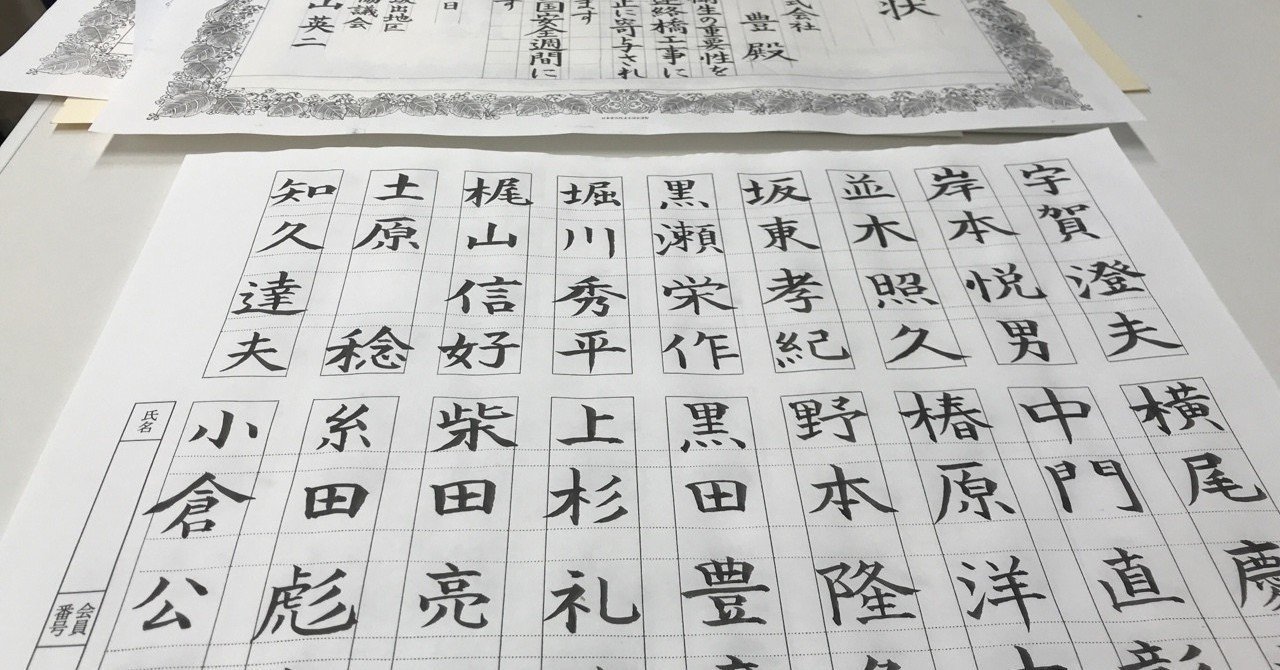 状
豊殿
式会社
衛生の重要性を
連絡橋工事に
止に寄与され
ます
国安全週間に
す
日
坂出地区
協議会
山英二
宇賀澄夫
岸本悦男
並木照久
坂東孝紀
黒瀬栄作
堀川秀平
梶山信好
土原稔
知久達夫
横尾慶
中門直
椿原洋
野本隆
黒田豊
上杉礼
柴田亮
糸田彪
小倉公
氏名
会員番号